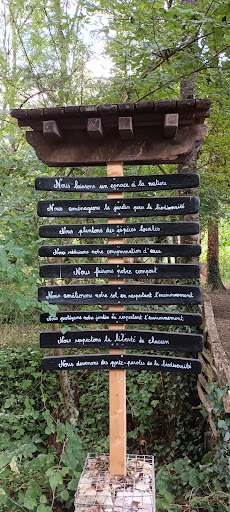 Nous laissons un espace à la nature
Nous aménageons le jardin pour la biodiversité
Nous plantons des espèces locales
Nous réduisons notre consommation d'eau
Nous faisons notre compost
Nous améliorons notre sol en respectant l'environnement
Nous protégeons notre jardin en respectant l'environnement
Nous respectons la liberté de chacun
Nous devenons des porte-paroles de la biodiversité